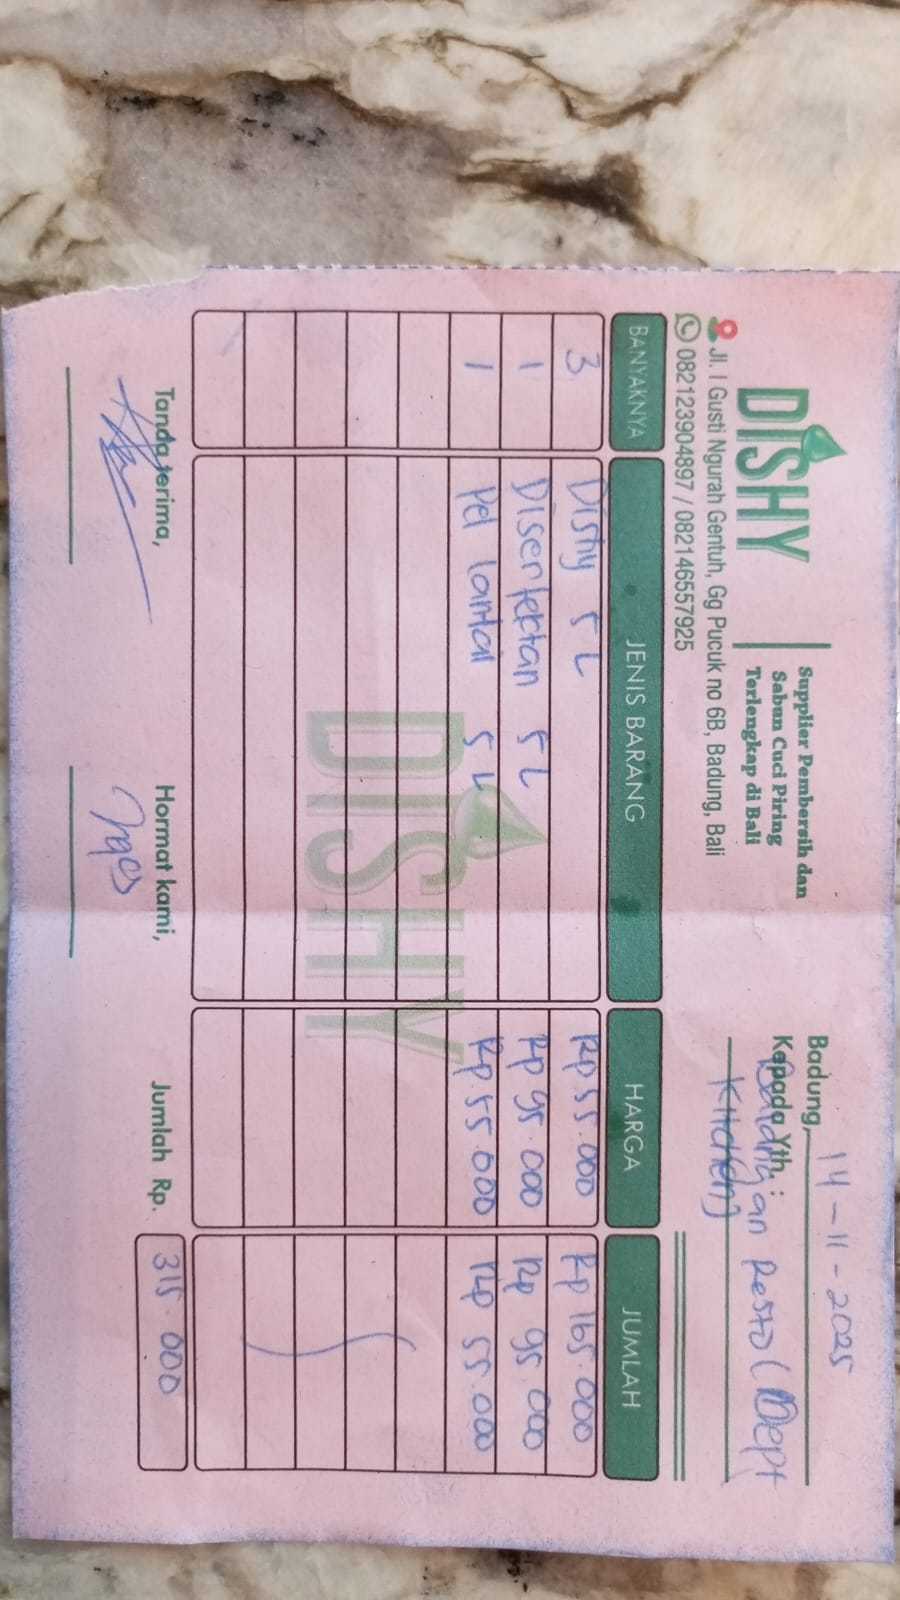 DISHY
Supplier Pembersih dan
Sabun Cuci Piring
Terlengkap di Bali
Jl. I Gusti Ngurah Gentuh, Gg Pucuk no 6B, Badung, Bali
082123904897 / 082146557925
Badung, 14-11-2025
Kepada Yth. : Resto (Dept
Kitchen)
BANYAKNYA JENIS BARANG HARGA JUMLAH
3 Dishy 5 L Rp 55.000 Rp 165.000
1 Disenfektan 5 L Rp 95.000 Rp 95.000
1 Pel lantai 5 L Rp 55.000 Rp 55.000
DISHY
Tanda terima, Hormat kami, Jumlah Rp. 315.000